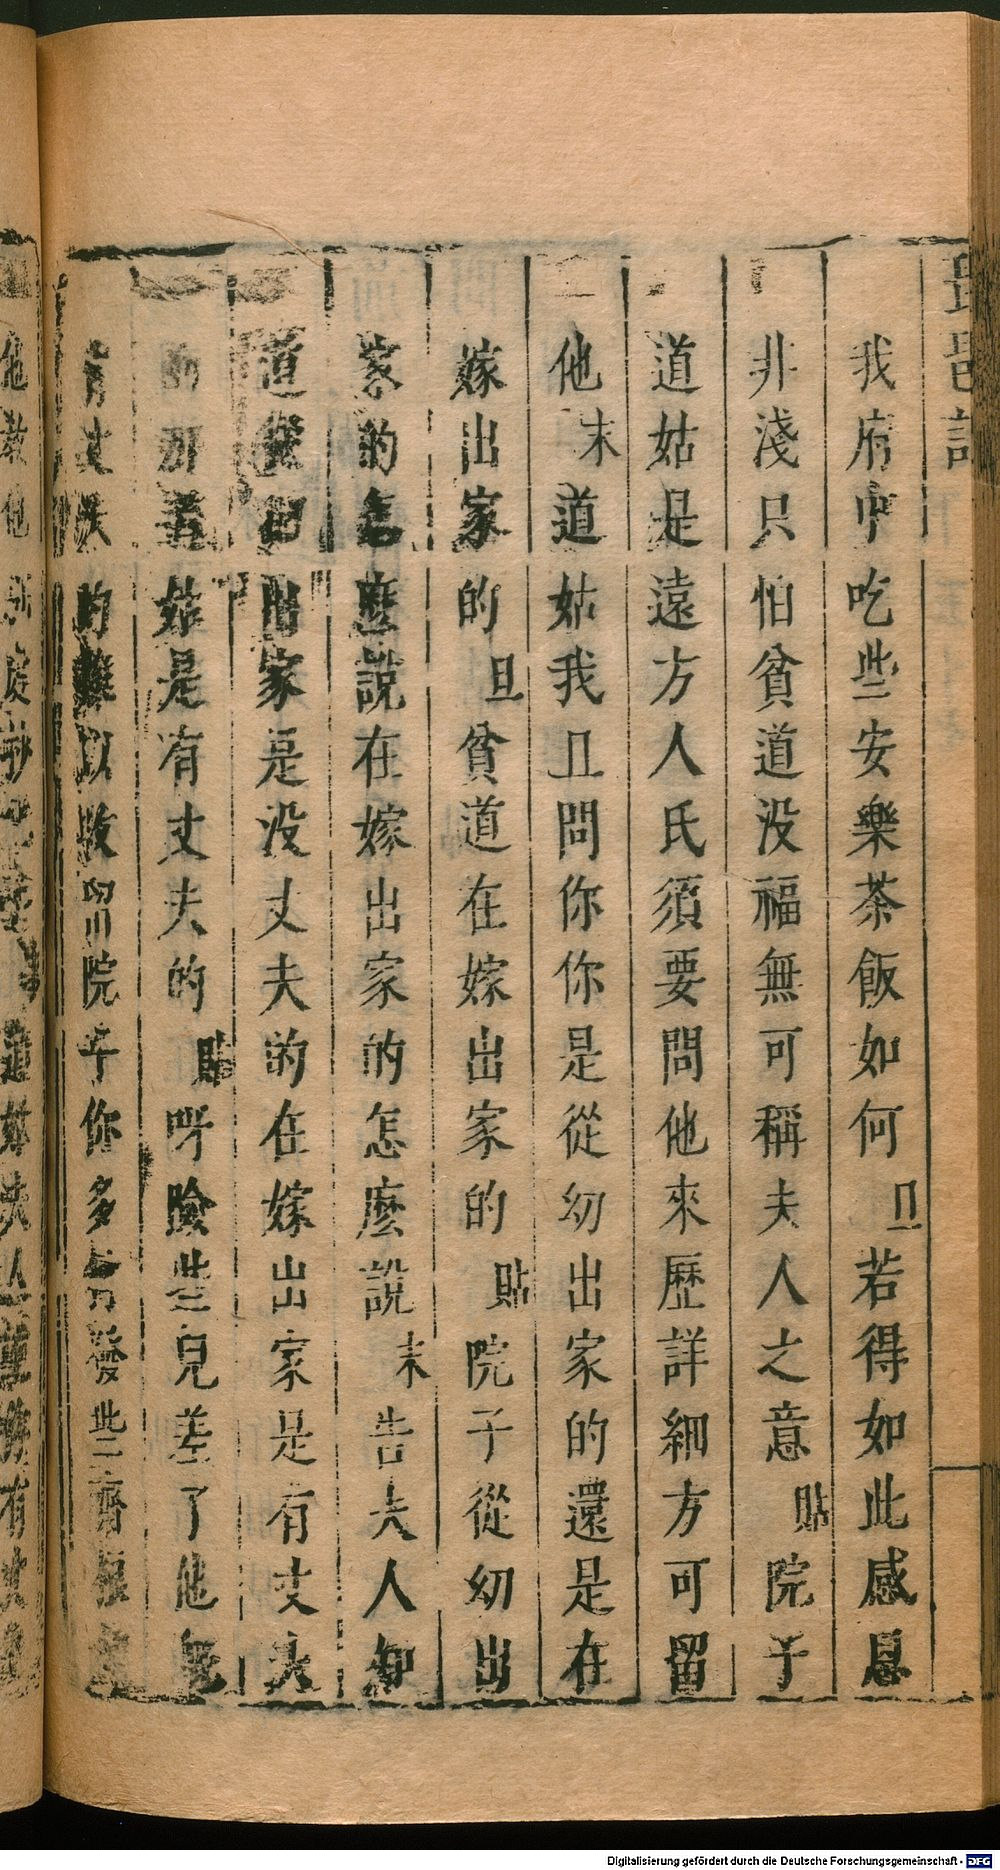 琵琶記
我府中吃些安樂茶飯如何 旦 若得如此感恩
非淺只怕貧道没福無可稱夫人之意 貼 院子
道姑是遠方人氏須要問他來歷詳細方可留
他 末 道姑我且問你你是從幼出家的還是在
嫁出家的 旦 貧道在嫁出家的 貼 院子從幼出
家的怎麽說在嫁出家的怎麽說 末 告夫人知
道從幼出家是没丈夫的在嫁出家是有丈夫
的那道姑是有丈夫的 貼 呀險些兒差了他旣
有丈夫的難以收留院子你多與發些齋糧
Digitalisierung gefördert durch die Deutsche Forschungsgemeinschaft - DFG